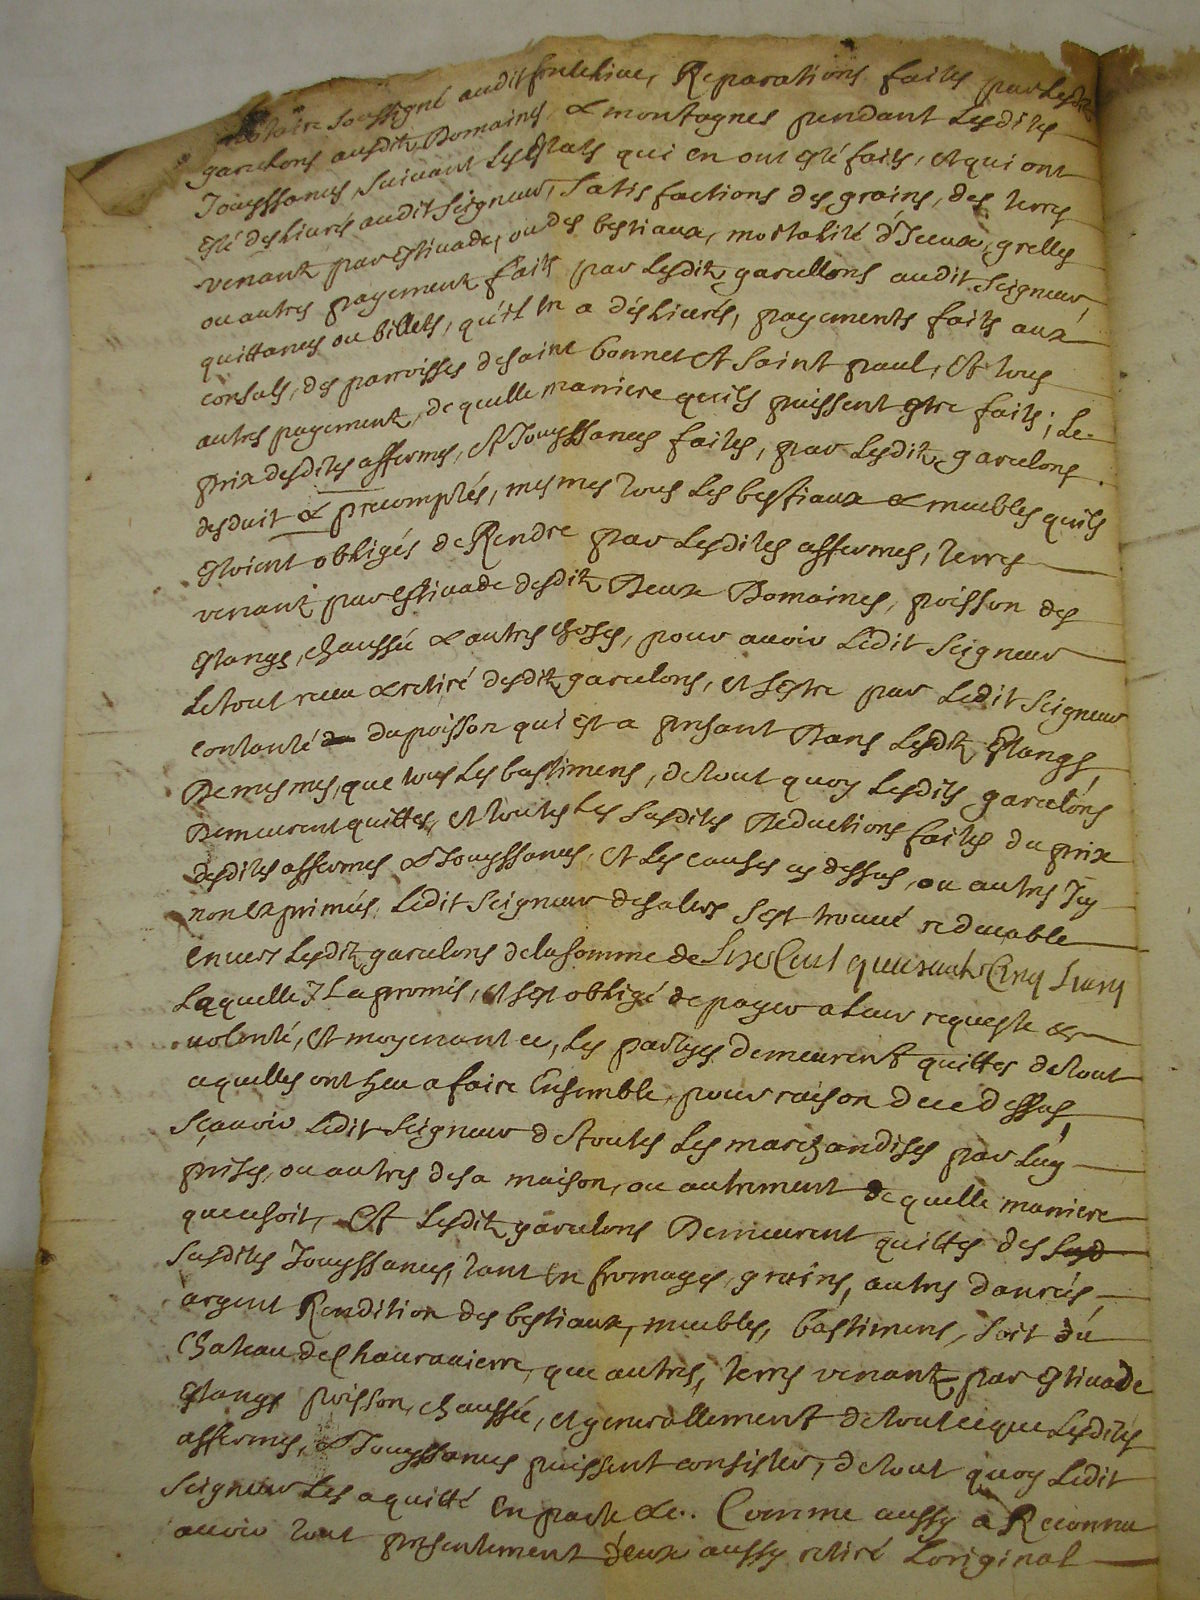 notaire soussigné audit fontelive, Reparations faites par lesdits
garcelons ausdits Domaines & montagnes pendant Lesdites
Jouyssances, suivant Les Estats qui en ont esté faits, et qui ont
esté deslivrés audit seigneur, satisfactions des grains, des terres
venant par estivade, ou des bestiaux, mortalité d'Iceux, grelles
ou autres payement faits par Lesditz garcellons audit seigneur
quittances ou billets, qu'il en a déslivrés, payements faits aux
consuls, des parroisses de saint bonnet et saint paul, et tous
autres payement, de quelle maniere quils puissent estre faits; Le
prix desdites affermes, et Jouyssances faites, par Lesditz garcelons
desduit & precomptés, mesmes tous Les bestiaux & meubles quils
estoient obligés de Rendre par Lesdites affermes, terres
venant par estivade desditz Deux Domaines, poisson des
estangs, chaussée & autres choses, pour avoir Ledit seigneur
Le tout receu & retiré desditz garcelons, et sestre par Ledit seigneur
contanté du poisson qui est a presant Dans Lesditz Estangs,
De mesmes, que tous Les bastimens, de tout quoy Lesdits garcelons
Demeurent quittes, et toutes Les susdites Deductions faites du prix
desdites affermes & Jouyssances, et Les causes cy dessus, ou autres Icy
non exprimées, Ledit seigneur de salers sest trouvé redevable
envers Lesditz garcelons de la somme de Sixs Cent quarante Cinq Livres
Laquelle Il a promis, et sest obligé de payer a Leur requeste &
volonté, et moyenant ce, Les partyes demeurent quittes de tout
ce quelles ont heu a faire Ensemble, pour raison de ce dessus,
sçavoir Ledit seigneur de toutes Les marchandises par Luy
prises, ou autres de sa maison, ou autrement de quelle maniere
que ce soit, Et Lesditz garcelons Demeurent quittes des susd
susdites Jouyssances, tant En fromages, grains, autres danrées,
argent Rendition des bestiaux, meubles, bastimens, soit du
Chateau de Chauranierre, que autres, terres venant par estivade
estangs poisson, chaussée, et generallement de tout ce que Lesdites
affermes, & Jouyssances puissent consister, de tout quoy Ledit
seigneur Les a quitté En pacte &c. Comme aussy a Reconnu
avoir tout presentement d'eux aussy retiré Loriginal